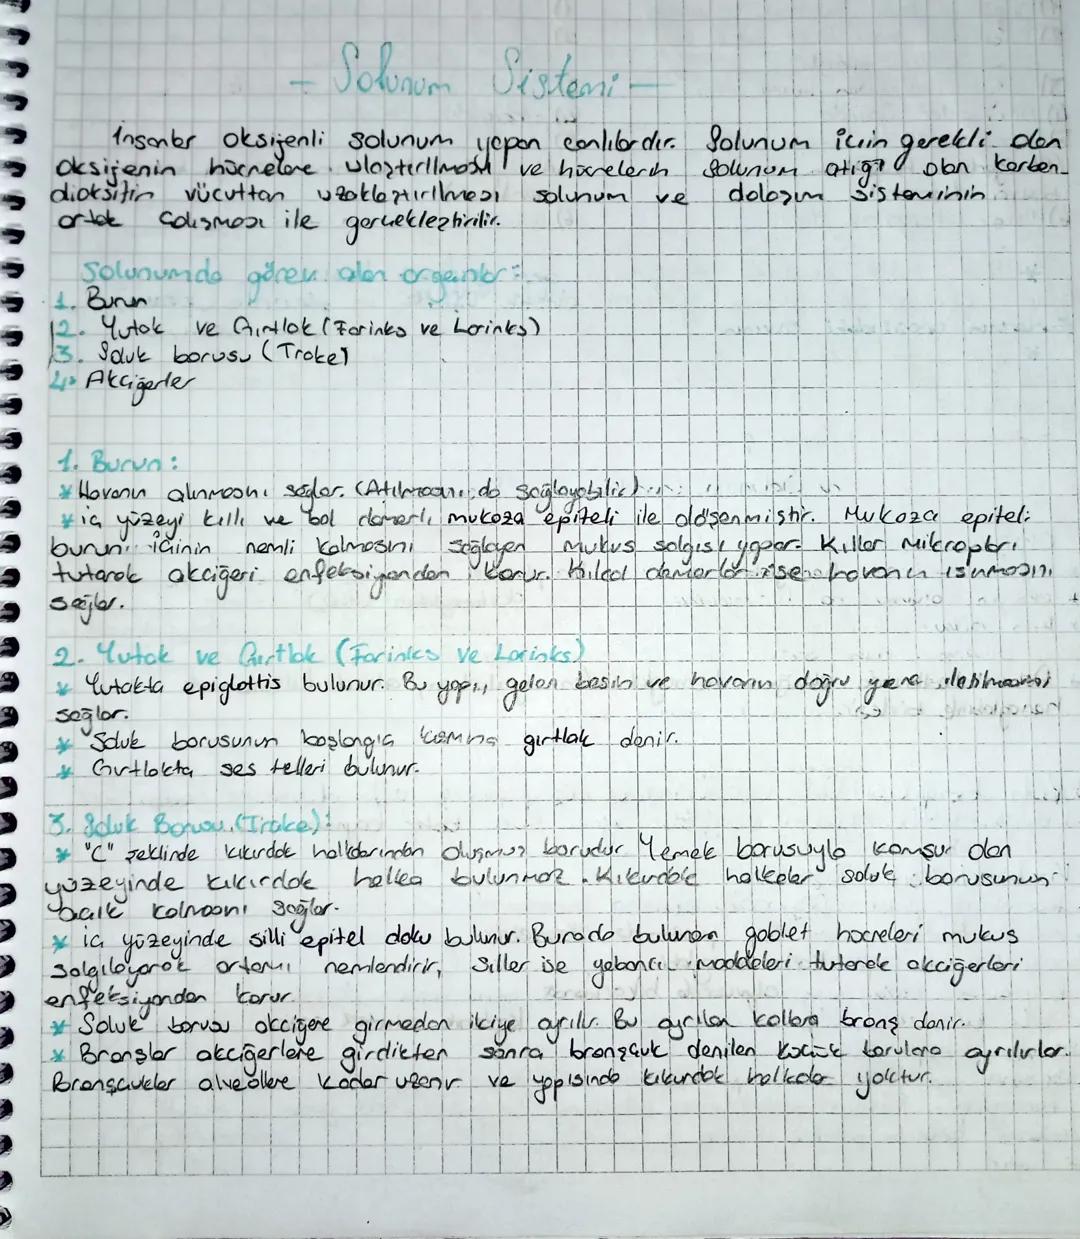 - Solunum Sistemi -
İnsanlar oksijenli solunum yapan canlılardır. Solunum için gerekli olan
oksijenin hücrelere ulaştırılması ve hücrelerin solunum atığı olan karbon-
dioksitin vücuttan uzaklaştırılması solunum ve dolaşım sisteminin
ortak çalışması ile gerçekleştirilir.
Solunumda görev alan organlar:
1. Burun
2. Yutak ve Gırtlak (Farinks ve Larinks)
3. Soluk borusu (Trake)
4. Akciğerler
1. Burun:
* Havanın alınmasını sağlar. (Atılmasını da sağlayabilir)
* iç yüzeyi kıllı ve bol damarlı mukoza epiteli ile döşenmiştir. Mukoza epiteli
burun içinin nemli kalmasını sağlayan mukus salgısı yapar. Kıllar mikropları
tutarak akciğeri enfeksiyondan korur. Kılcal damarlar ise havanın ısınmasını
sağlar.
2. Yutak ve Gırtlak (Farinks ve Larinks)
* Yutakta epiglottis bulunur. Bu yapı, gelen besin ve havanın doğru yere iletilmesini
sağlar.
* Soluk borusunun başlangıç kısmına gırtlak denir.
* Gırtlakta ses telleri bulunur.
3. Soluk Borusu (Trake):
* "C" şeklinde kıkırdak halkalarından oluşmuş borudur Yemek borusuyla komşu olan
yüzeyinde kıkırdak halka bulunmaz. Kıkırdak halkalar soluk borusunun
açık kalmasını sağlar.
* iç yüzeyinde silli epitel doku bulunur. Burada bulunan goblet hücreleri mukus
salgılayarak ortamı nemlendirir, Siller ise yabancı maddeleri tutarak akciğerleri
enfeksiyondan korur.
* Soluk borusu akciğere girmeden ikiye ayrılır. Bu ayrılan kollara bronş denir.
* Bronşlar akciğerlere girdikten sonra bronşçuk denilen küçük borulara ayrılırlar.
Bronşçuklar alveollere kadar uzanır ve yapısında kıkırdak halkalar yoktur.